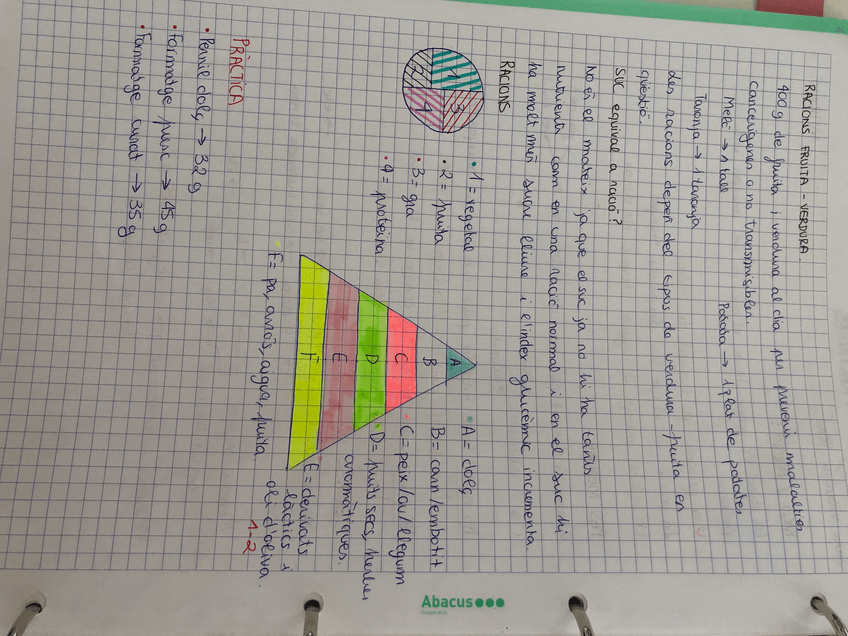 RACIONS FRUITA - VERDURA.
400g de fruita i verdura al dia per prevenir malalties
cancerígenes o no transmissibles.
Meló → 1 tall Patata → 1 plat de patates
Taronja → 1 taronja
Les racions depèn del tipus de verdura - fruita en
qüestió.
SUC equival a ració?
No és el mateix ja que el suc ja no hi ha tants
nutrients com en una ració normal i en el suc hi
ha molt més sucre lliure i l'índex glucèmic incrementa.
RACIONS
1
2
3
4
• 1 = vegetal
• 2 = fruita
• 3 = gra
• 4 = proteina.
A
B
C
D
E
F
• A = dolç
B = carn/embotit
• C = peix/ou/llegum
• D = fruits secs, herbes
aromàtiques.
E = derivats
làctics i
oli d'oliva.
1-2
F = pa, arròs, aigua, fruita.
PRÀCTICA
• Pernil dolç → 32 g
• Formatge fresc → 45 g
• Formatge curat → 35 g.
Abacus